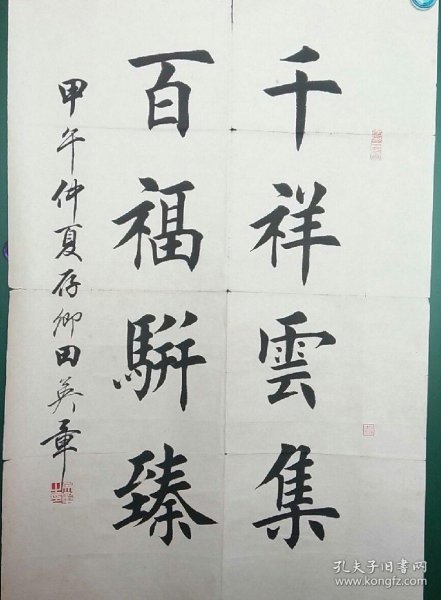 千祥雲集
百福騈臻
甲午仲夏存卿田英章
孔夫子旧书网
kongfz.com